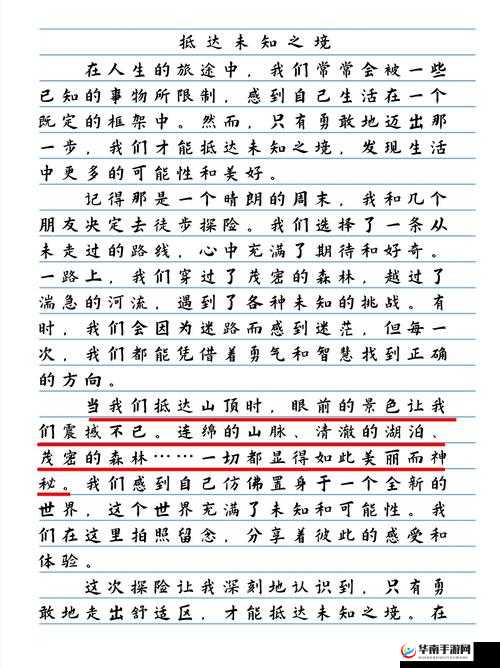 抵达未知之境
在人生的旅途中，我们常常会被一些
已知的事物所限制，感到自己生活在一个
既定的框架中。然而，只有勇敢地迈出那
一步，我们才能抵达未知之境，发现生活
中更多的可能性和美好。
记得那是一个晴朗的周末，我和几个
朋友决定去徒步探险。我们选择了一条从
未走过的路线，心中充满了期待和好奇。
一路上，我们穿过了茂密的森林，越过了
湍急的河流，遇到了各种未知的挑战。有
时，我们会因为迷路而感到迷茫，但每一
次，我们都能凭借着勇气和智慧找到正确
的方向。
当我们抵达山顶时，眼前的景色让我
们震撼不已。连绵的山脉、清澈的湖泊、
茂密的森林……一切都显得如此美丽而神
秘。我们感到自己仿佛置身于一个全新的
世界，这个世界充满了未知和可能性。我
们在这里拍照留念，分享着彼此的感受和
体验。
这次探险让我深刻地认识到，只有勇
敢地走出舒适区，才能抵达未知之境。在
华南手游网